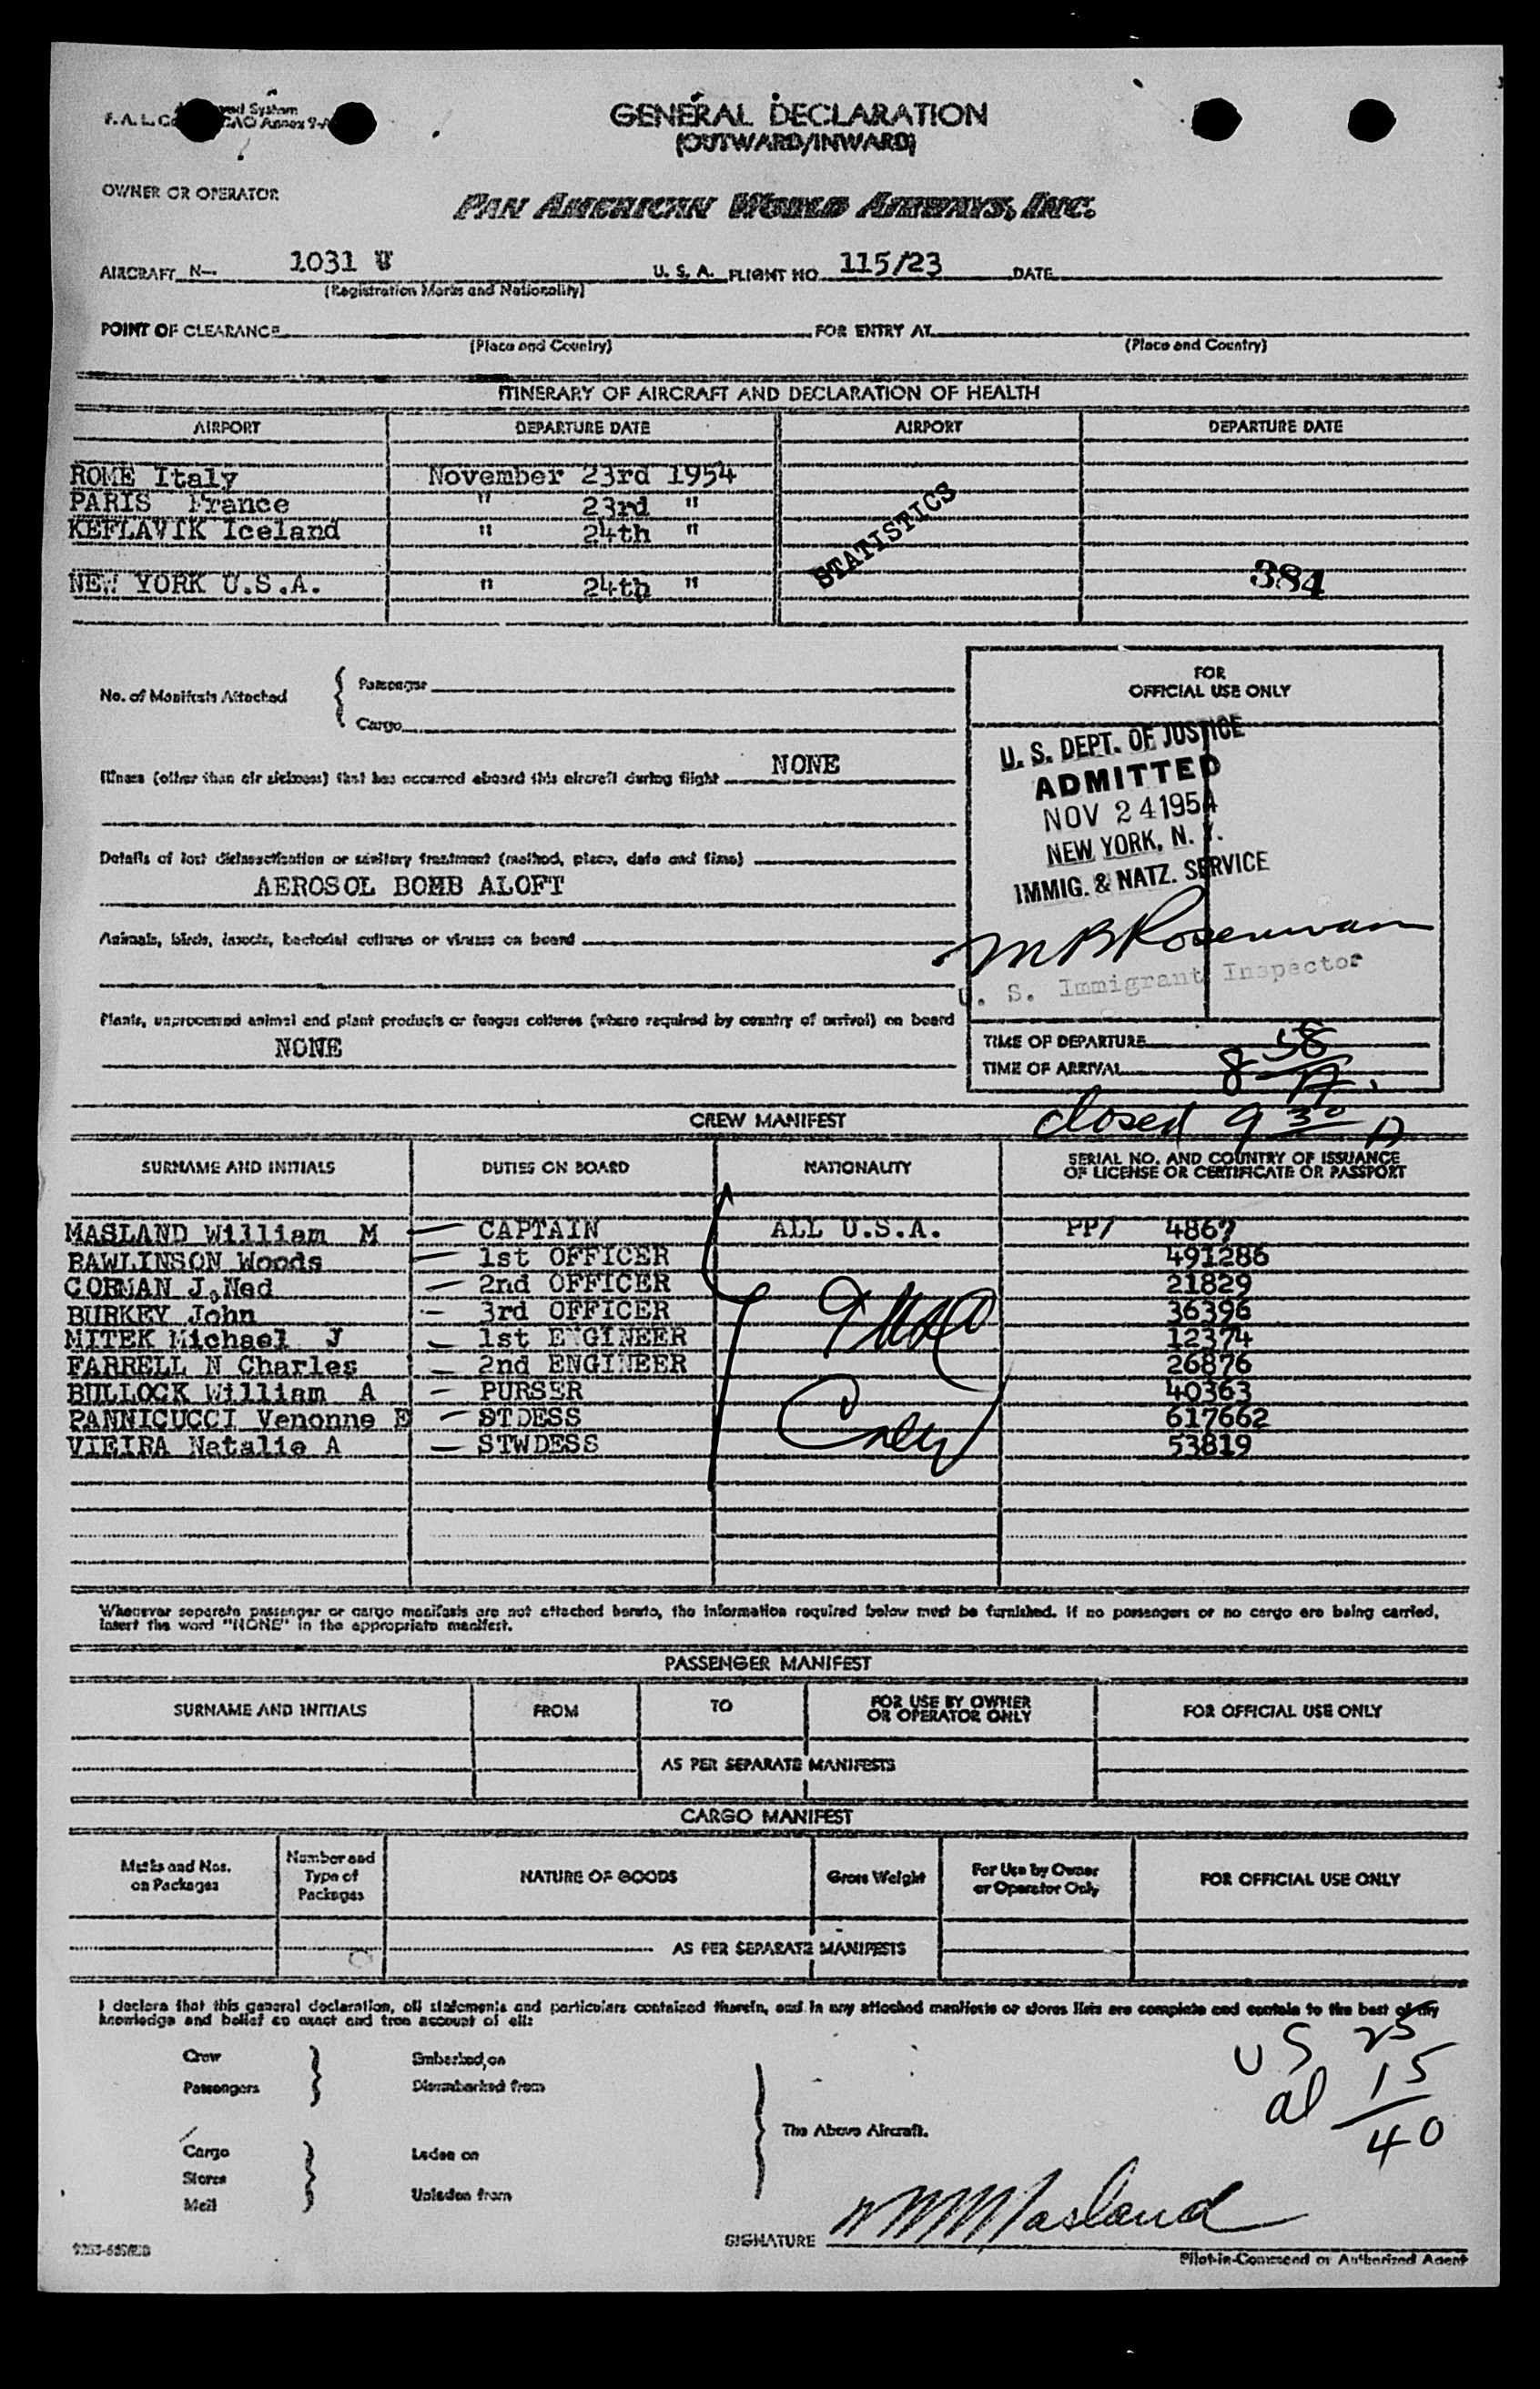 GENERAL DECLARATION
(OUTWARD/INWARD)
OWNER OR OPERATOR
PAN AMERICAN WORLD AIRWAYS, INC.
AIRCRAFT N-. 1031 V U. S. A. FLIGHT NO. 115/23 DATE
(Registration Marks and Nationality)
POINT OF CLEARANCE FOR ENTRY AT
(Place and Country) (Place and Country)
ITINERARY OF AIRCRAFT AND DECLARATION OF HEALTH
AIRPORT DEPARTURE DATE AIRPORT DEPARTURE DATE
ROME Italy November 23rd 1954
PARIS France " 23rd "
KEFLAVIK Iceland " 24th "
STATISTICS
NEW YORK U.S.A. " 24th " 384
No. of Manifests Attached { Passenger
Cargo
FOR
OFFICIAL USE ONLY
U. S. DEPT. OF JUSTICE
ADMITTED
NOV 24 1954
NEW YORK, N. Y.
IMMIG. & NATZ. SERVICE
U. S. Immigrant Inspector
TIME OF DEPARTURE
TIME OF ARRIVAL 8 58 A.
closed 9 30 A
Illness (other than air sickness) that has occurred aboard this aircraft during flight NONE
Details of last disinsectisation or sanitary treatment (method, place, date and time)
AEROSOL BOMB ALOFT
Animals, birds, insects, bacterial cultures or viruses on board
Plants, unprocessed animal and plant products or fungus cultures (where required by country of arrival) on board
NONE
CREW MANIFEST
SURNAME AND INITIALS DUTIES ON BOARD NATIONALITY SERIAL NO. AND COUNTRY OF ISSUANCE
OF LICENSE OR CERTIFICATE OR PASSPORT
MASLAND William M — CAPTAIN ALL U.S.A. PP/ 4867
RAWLINSON Woods — 1st OFFICER 491286
GORMAN J.Ned — 2nd OFFICER 21829
BURKEY John — 3rd OFFICER 36396
MITEK Michael J — 1st ENGINEER 12374
FARRELL N Charles — 2nd ENGINEER 26876
BULLOCK William A — PURSER 40363
PANNICUCCI Venonne E — STDESS 617662
VIEIRA Natalie A — STWDESS 53819
Whenever separate passenger or cargo manifests are not attached hereto, the information required below must be furnished. If no passengers or no cargo are being carried,
insert the word "NONE" in the appropriate manifest.
PASSENGER MANIFEST
SURNAME AND INITIALS FROM TO FOR USE BY OWNER
OR OPERATOR ONLY FOR OFFICIAL USE ONLY
AS PER SEPARATE MANIFESTS
CARGO MANIFEST
Marks and Nos.
on Packages Number and
Type of
Packages NATURE OF GOODS Gross Weight For Use by Owner
or Operator Only FOR OFFICIAL USE ONLY
AS PER SEPARATE MANIFESTS
I declare that this general declaration, all statements and particulars contained therein, and in any attached manifests or stores lists are complete and contain to the best of my
knowledge and belief an exact and true account of all:
US 25
al 15
40
Crew Embarked on
Passengers Disembarked from
The Above Aircraft.
Cargo Laden on
Stores
Mail Unladen from
SIGNATURE WMMasland
Pilot-in-Command or Authorized Agent